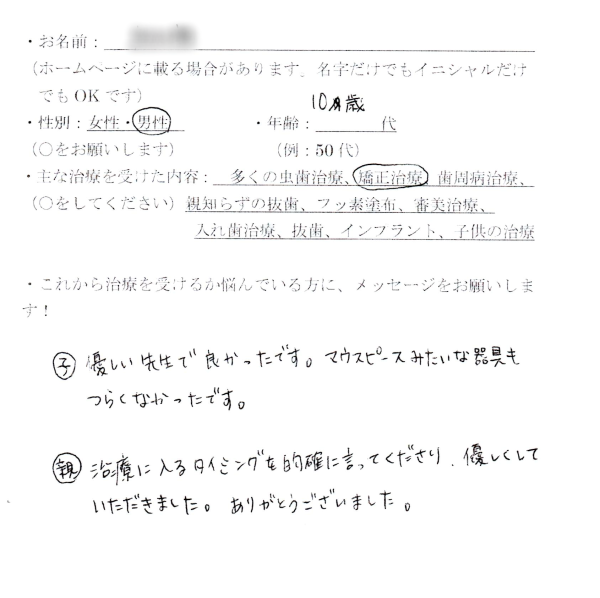 ・お名前：
（ホームページに載る場合があります。名字だけでもイニシャルだけ
でもOKです）
10歳
・性別：女性・男性　・年齢：　代
（○をお願いします）　（例：50代）
・主な治療を受けた内容：　多くの虫歯治療、矯正治療、歯周病治療、
（○をしてください）親知らずの抜歯、フッ素塗布、審美治療、
入れ歯治療、抜歯、インプラント、子供の治療
・これから治療を受けるか悩んでいる方に、メッセージをお願いしま
す！
子 優しい先生で良かったです。マウスピースみたいな器具も
つらくなかったです。
親 治療に入るタイミングを的確に言ってくださり、優しくして
いただきました。ありがとうございました。